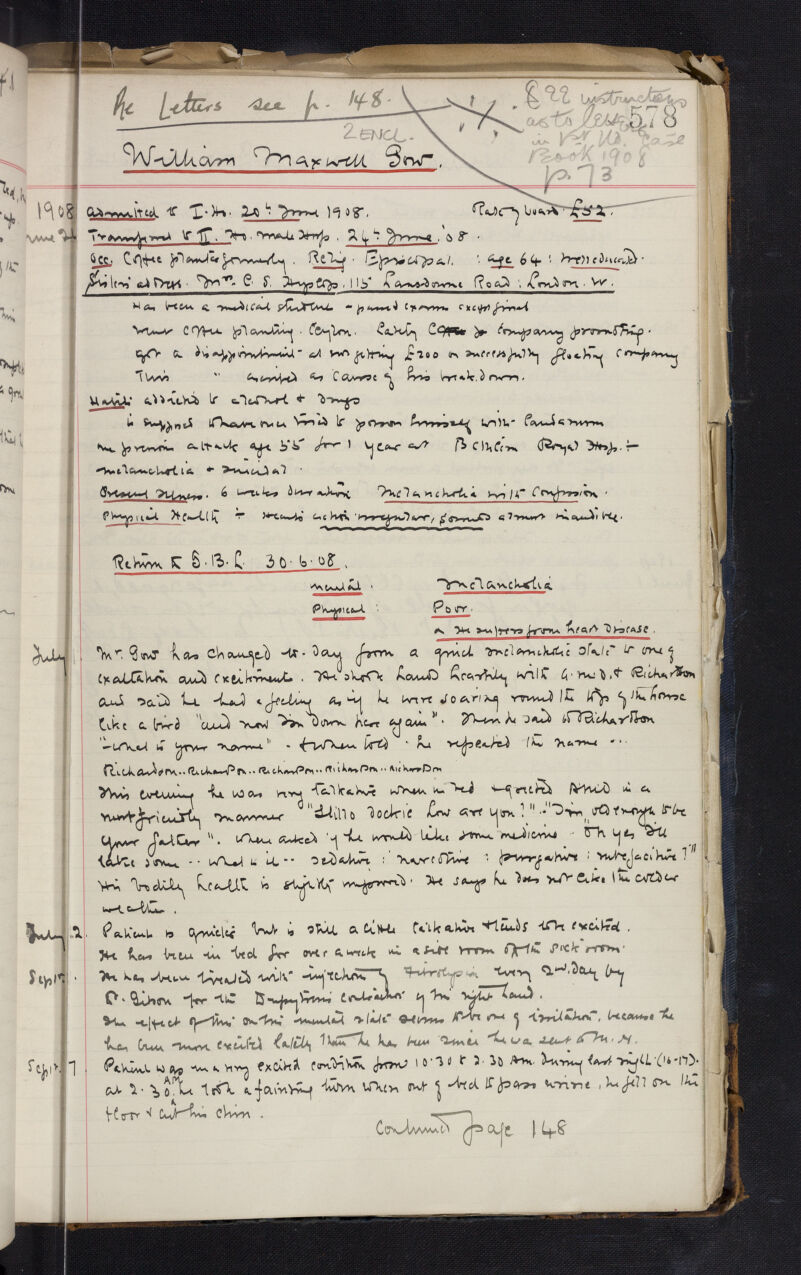 Re Letters see p. 148.
& 99 instructions
as to letters
578
2 ENCL.
in 1st Ho. Case
Book 1908
p. 73
William Maxwell Gow.
1908 Admitted to I. Ho. 20th June 1908. Rate of board £52.
June 24 Transferred to II. Ho. Male Hosp. 24th June '08.
Occ. Coffee planter formerly. Relig. Episcopal. : age 64 : well educated.
Sister's address. Mrs. C. S. Hyslop. 115 Lansdowne Road : London. W.
Has been a medical student - passed exams except final
went coffee planting. Ceylon. Lately company promoting.
got a disappointment at not getting £200 on successfully floating company
This " ascribed as cause of his breakdown.
Habits addicted to alcohol & drugs
is supposed to have once tried to poison himself with laudanum
one previous attack age 55 for 1 year at Bethlem Royal Hosp. :-
melancholia & suicidal.
Present Illness. 6 weeks duration Melancholia with Confusion.
Physical Health :- Heart's action irregular, sounds almost inaudible.
Return to G.B.L. 30.6.08.
Mental. Melancholia
Physical : Poor.
& He suffers from heart disease.
July 1. Mr. Gow has changed to-day from a quiet melancholic state to one of
exaltation and excitement. He shook hands heartily with G.M.D. & Richardson
and said he had a feeling as if he were soaring round the top of the house
like a bird "and now I'm down here again". Then he said to Richardson
"-what is your name" - & when told - he repeated the name ...
Richardson..Richardson..Richardson..Richardson..Richardson
This evening he was very talkative when in bed & greeted in a
most friendly manner "Hillo doctie how are you?" - "I'm old enough to be
your father". When asked if he would like some medicine - "Oh yes I'll
take some -- what is it -- sedative : narcotive : purgative : rubefacitive?"
His bodily health is slightly improved. He says he does not like the colder
weather.
July 12. Patient is quieter but is still a little talkative & tends to be excited.
He has been in bed for over a week in a side room off the sick room.
Sept. He has been treated with injections of Fibrolysin every 2nd day by
Dr. Gibson for the Dupuytren's contraction of his right hand.
The effect of this on his mental state seems to be one of irritation, because he
has been more excited lately than he has been since he was sent to M. H.
Sept. 17 Patient was in a very excited condition from 10.30 to 2.30 Am. during last night (16-17).
at 2.30 AM he took a fainting turn when out of bed to pass urine, he fell on the
floor & cut his chin.
Continued page 148